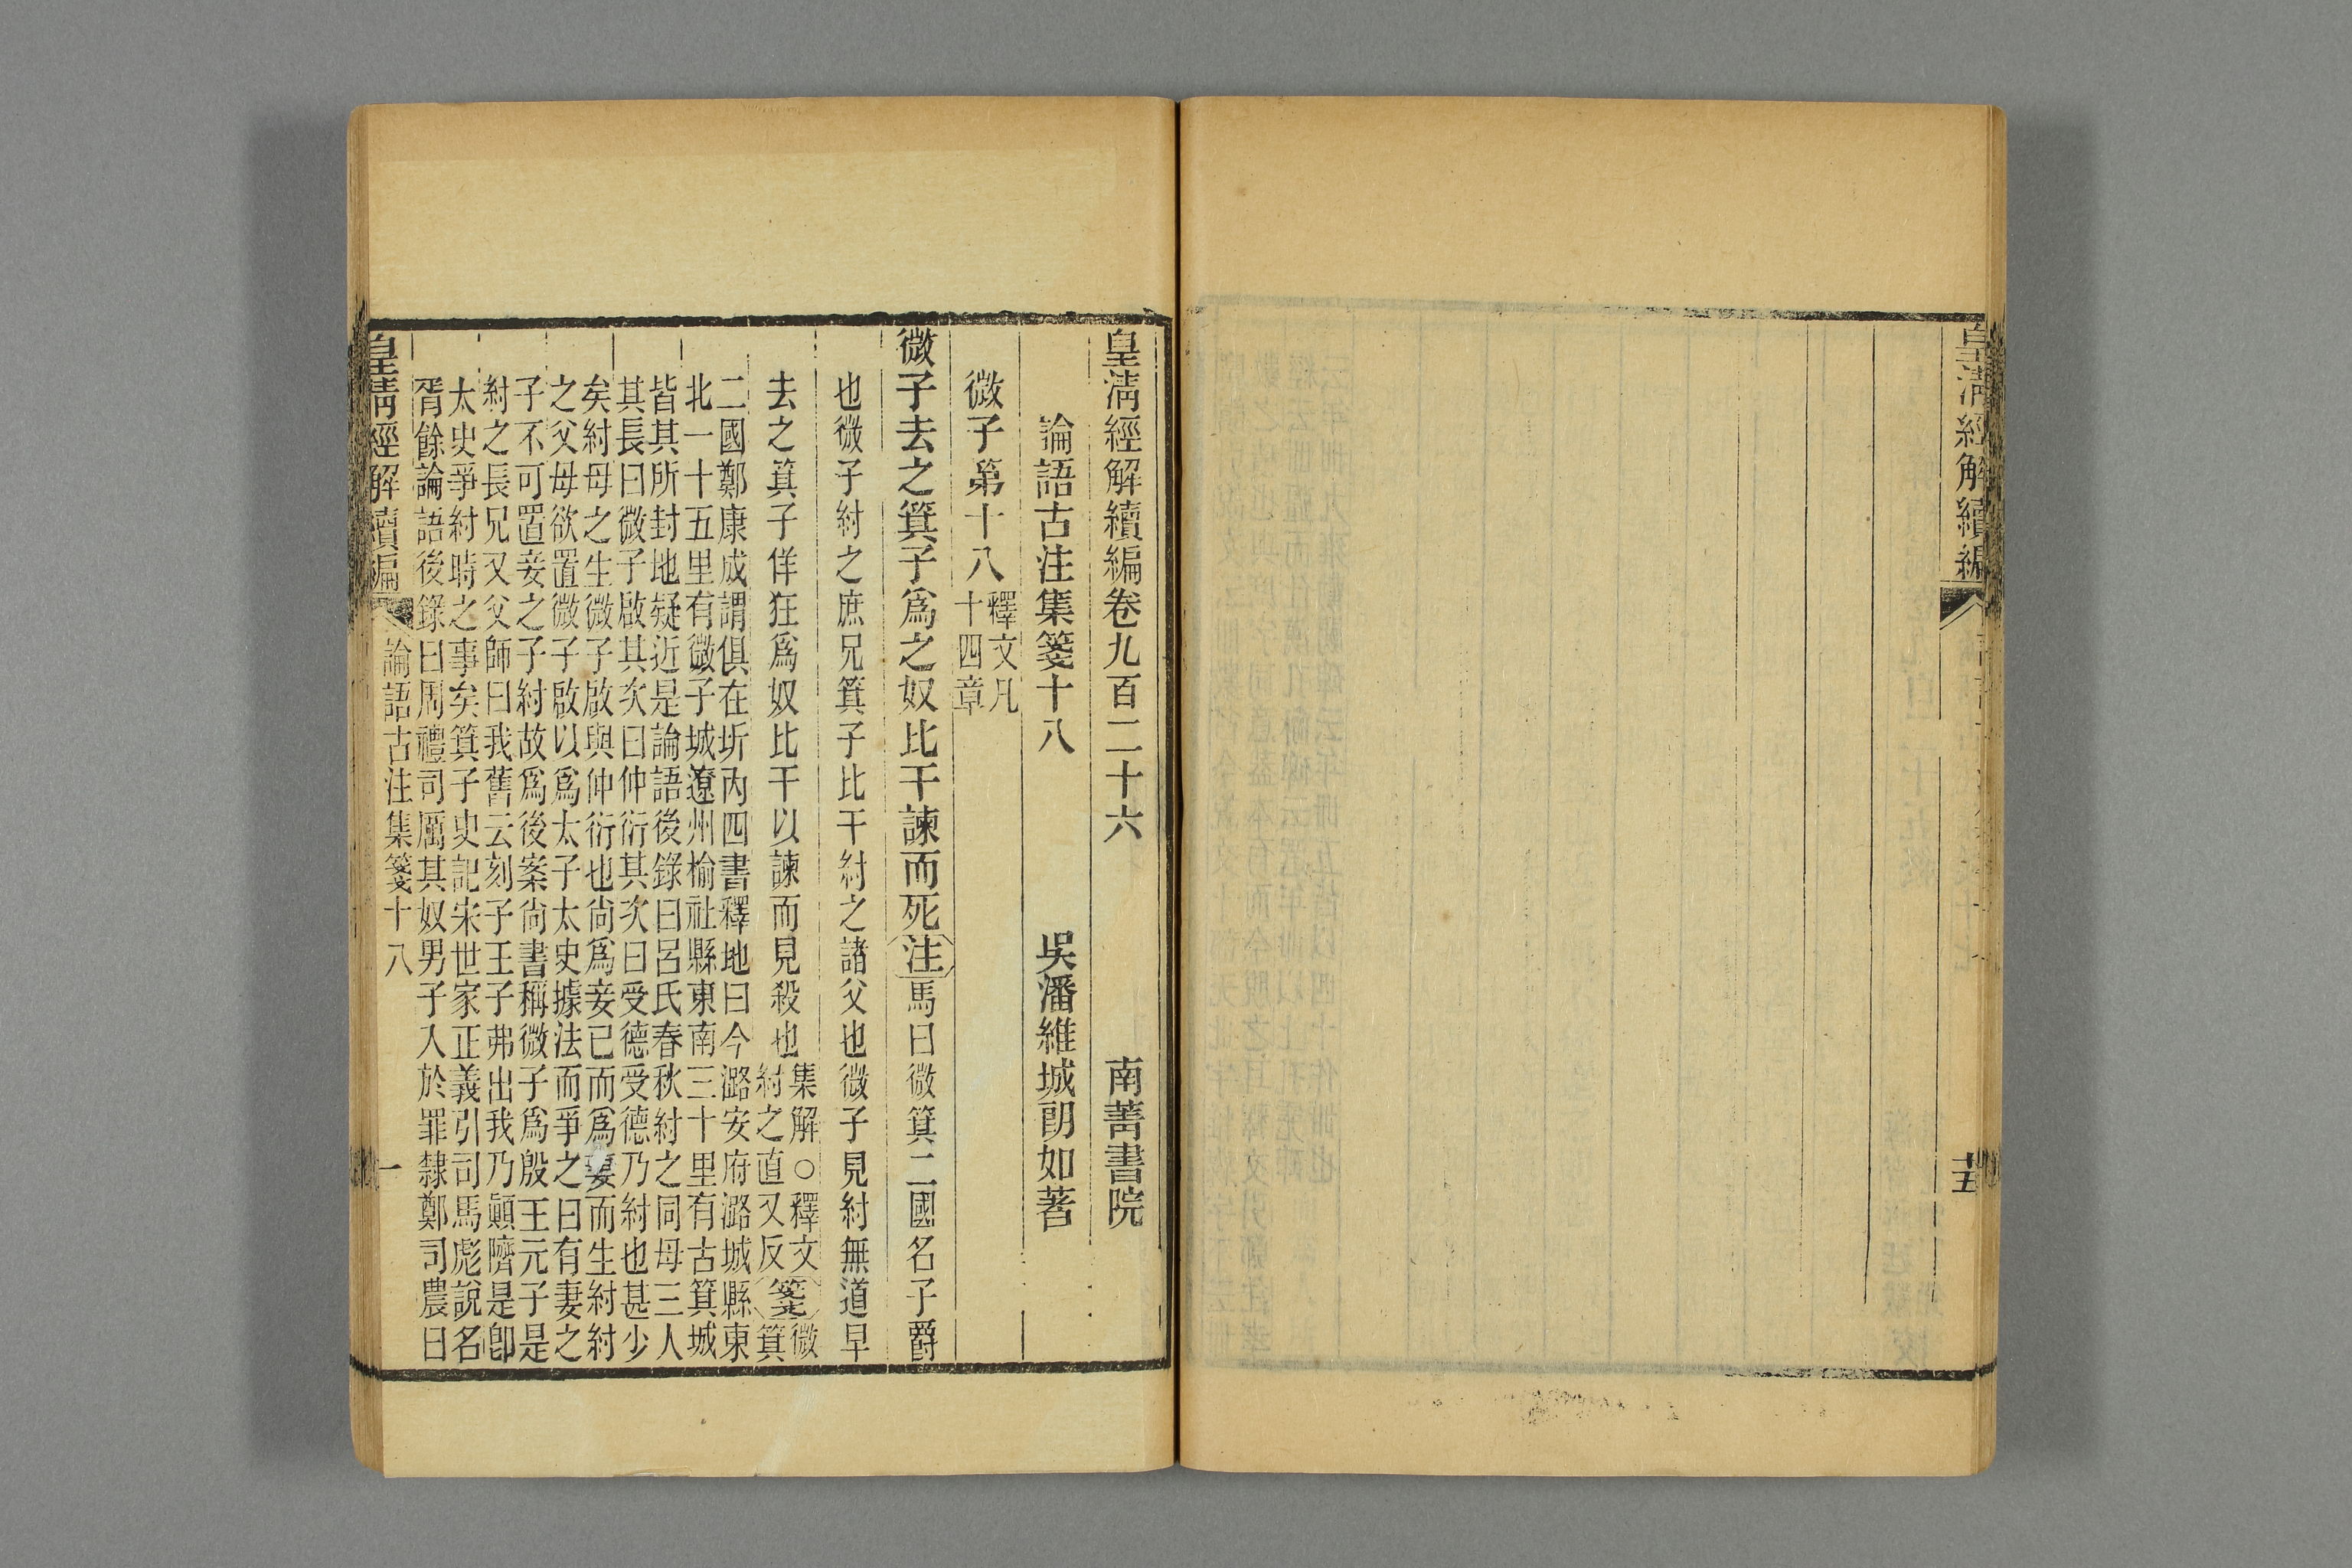 皇清經解續編
十五
皇清經解續編卷九百二十六　南菁書院
論語古注集箋十八　吳潘維城朗如著
微子第十八釋文凡十四章
微子去之箕子爲之奴比干諫而死注馬曰微箕二國名子爵
也微子紂之庶兄箕子比干紂之諸父也微子見紂無道早
去之箕子佯狂爲奴比干以諫而見殺也集解○釋文紂之直又反箋微箕
二國鄭康成謂俱在圻內四書釋地曰今潞安府潞城縣東
北一十五里有微子城遼州榆祉縣東南三十里有古箕城
皆其所封地疑近是論語後錄曰呂氏春秋紂之同母三人
其長曰微子啟其次曰仲衍其次曰受德受德乃紂也甚少
矣紂母之生微子啟與仲衍也尚爲妾已而爲妻而生紂紂
之父母欲置微子啟以爲太子太史據法而爭之曰有妻之
子不可置妾之子紂故爲後案尚書稱微子爲殷王元子是
紂之長兄又父師曰我舊云刻子王子弗出我乃顚隮是卽
太史爭紂時之事矣箕子史記宋世家正義引司馬彪說名
胥餘論語後錄曰周禮司厲其奴男子入於罪隸鄭司農曰
皇清經解續編　論語古注集箋十八　一